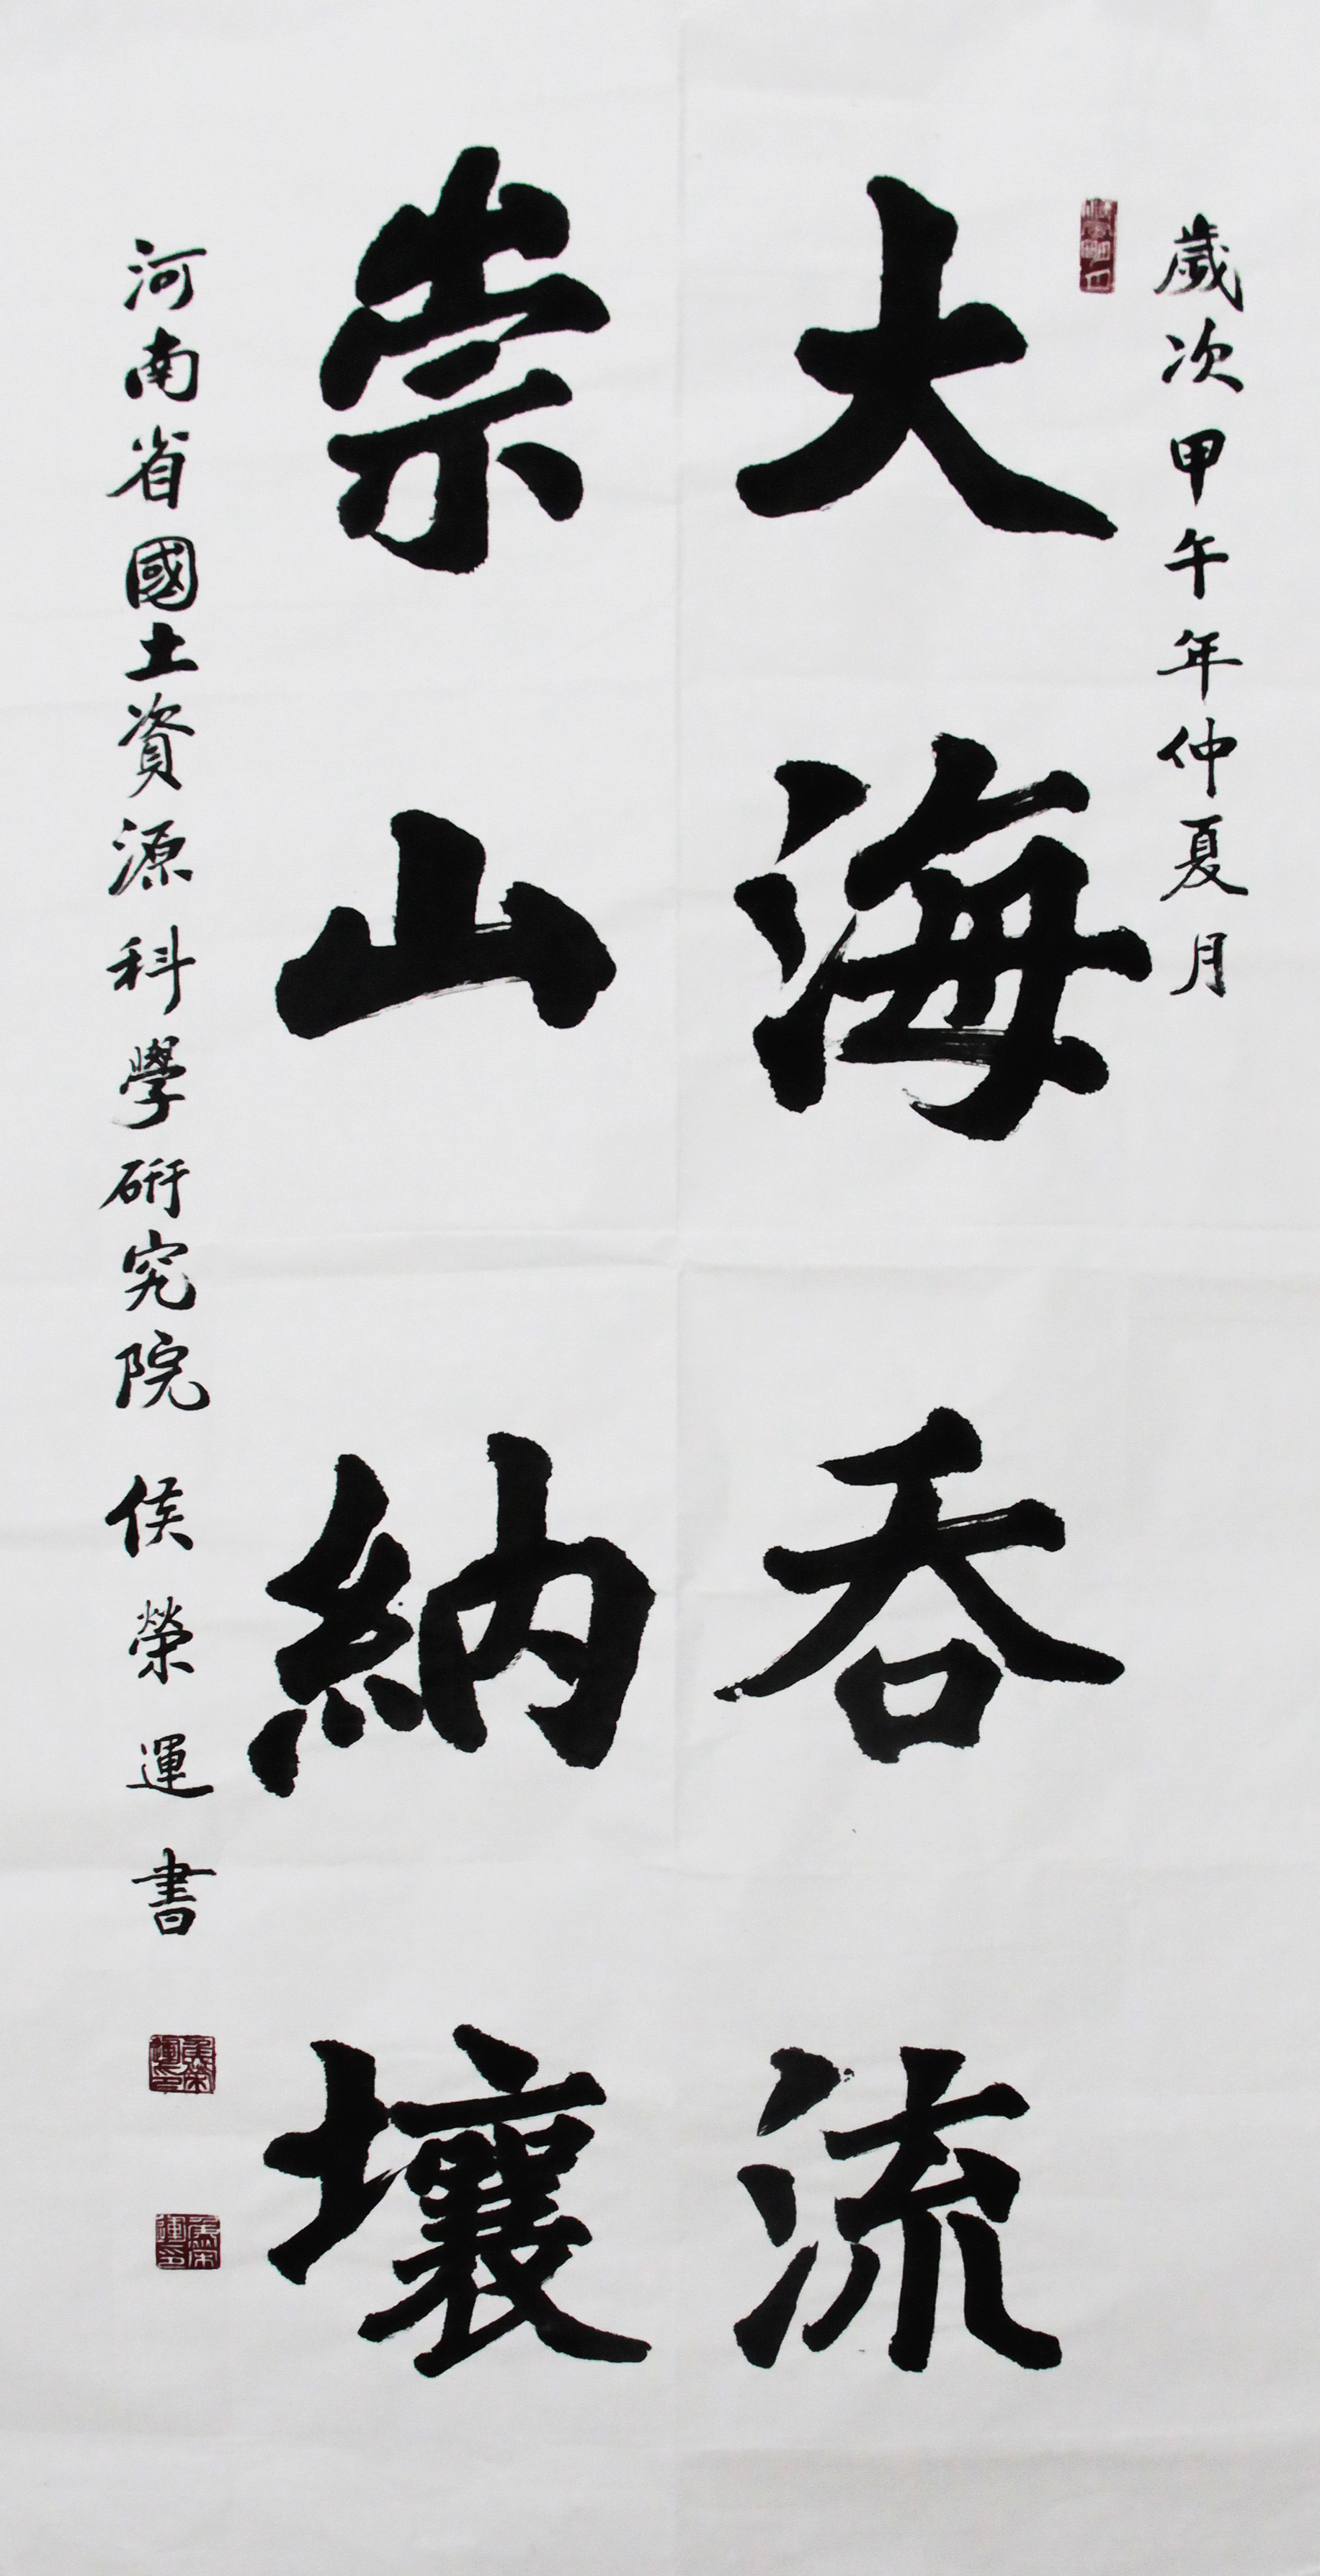 歲次甲午年仲夏月
大海吞流
崇山納壤
河南省國土資源科學研究院 侯榮運書